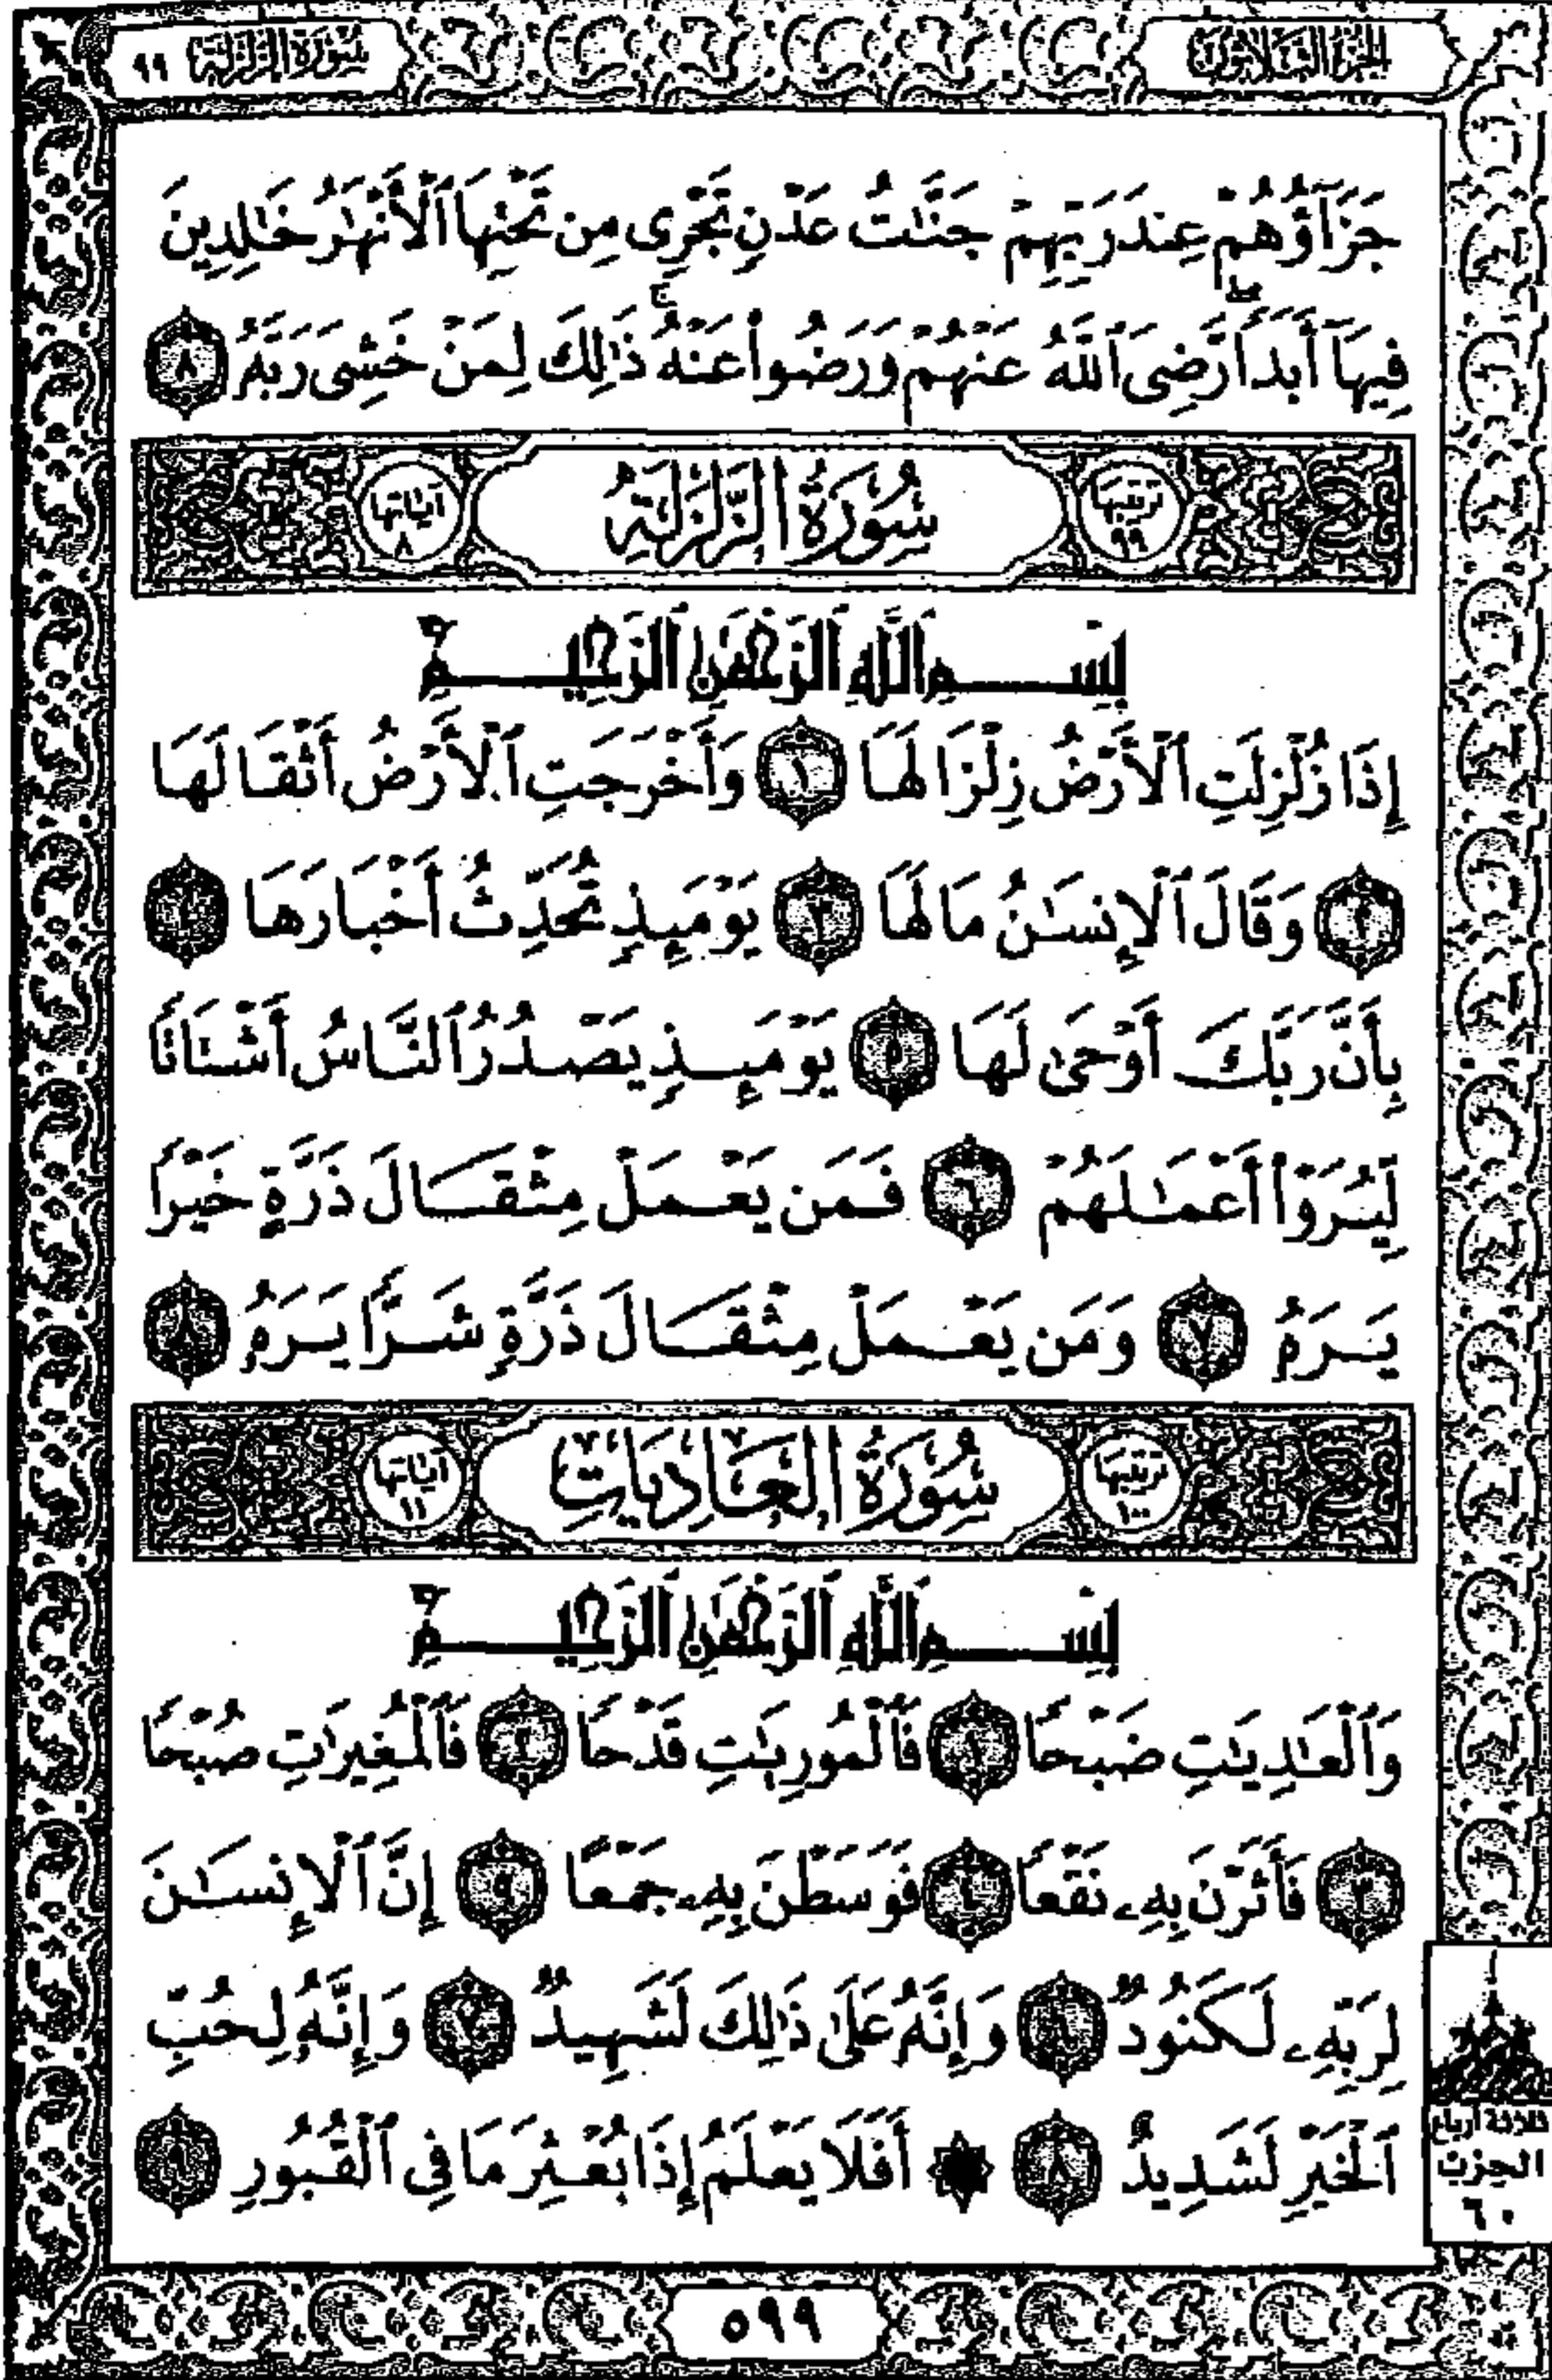 الجزء الثلاثون
سورة الزلزلة ٩٩
جَزَآؤُهُمْ عِندَ رَبِّهِمْ جَنَّٰتُ عَدْنٍ تَجْرِى مِن تَحْتِهَا ٱلْأَنْهَٰرُ خَٰلِدِينَ
فِيهَآ أَبَدًا ۖ رَّضِىَ ٱللَّهُ عَنْهُمْ وَرَضُوا۟ عَنْهُ ۚ ذَٰلِكَ لِمَنْ خَشِىَ رَبَّهُۥ ٨
ترتيبها ٩٩ سُورَةُ الزَّلْزَلَةِ آياتها ٨
بِسْمِ ٱللَّهِ ٱلرَّحْمَٰنِ ٱلرَّحِيمِ
إِذَا زُلْزِلَتِ ٱلْأَرْضُ زِلْزَالَهَا ١ وَأَخْرَجَتِ ٱلْأَرْضُ أَثْقَالَهَا
٢ وَقَالَ ٱلْإِنسَٰنُ مَا لَهَا ٣ يَوْمَئِذٍ تُحَدِّثُ أَخْبَارَهَا ٤
بِأَنَّ رَبَّكَ أَوْحَىٰ لَهَا ٥ يَوْمَئِذٍ يَصْدُرُ ٱلنَّاسُ أَشْتَاتًا
لِّيُرَوْا۟ أَعْمَٰلَهُمْ ٦ فَمَن يَعْمَلْ مِثْقَالَ ذَرَّةٍ خَيْرًا
يَرَهُۥ ٧ وَمَن يَعْمَلْ مِثْقَالَ ذَرَّةٍ شَرًّا يَرَهُۥ ٨
ترتيبها ١٠٠ سُورَةُ الْعَادِيَاتِ آياتها ١١
بِسْمِ ٱللَّهِ ٱلرَّحْمَٰنِ ٱلرَّحِيمِ
وَٱلْعَٰدِيَٰتِ ضَبْحًا ١ فَٱلْمُورِيَٰتِ قَدْحًا ٢ فَٱلْمُغِيرَٰتِ صُبْحًا
٣ فَأَثَرْنَ بِهِۦ نَقْعًا ٤ فَوَسَطْنَ بِهِۦ جَمْعًا ٥ إِنَّ ٱلْإِنسَٰنَ
لِرَبِّهِۦ لَكَنُودٌ ٦ وَإِنَّهُۥ عَلَىٰ ذَٰلِكَ لَشَهِيدٌ ٧ وَإِنَّهُۥ لِحُبِّ
ٱلْخَيْرِ لَشَدِيدٌ ٨ ۞ أَفَلَا يَعْلَمُ إِذَا بُعْثِرَ مَا فِى ٱلْقُبُورِ ٩
ثلاثة أرباع
الحزب
٦٠
٥٩٩